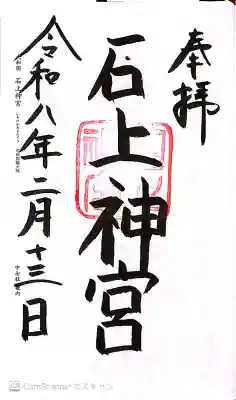 奉拝
石上神宮
令和八年二月十三日
CamScannerでスキャン